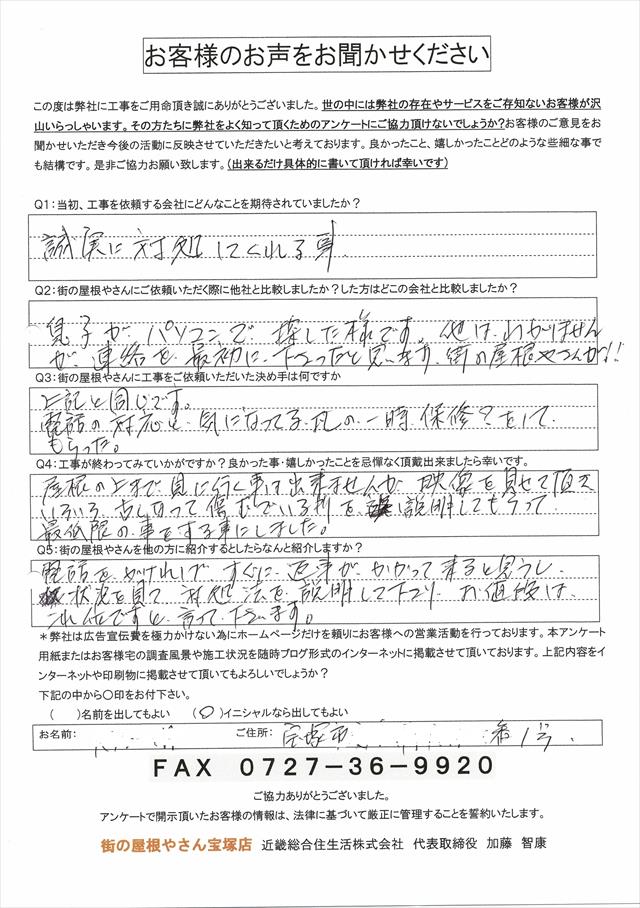 お客様のお声をお聞かせください
この度は弊社に工事をご用命頂き誠にありがとうございました。世の中には弊社の存在やサービスをご存知ないお客様が沢
山いらっしゃいます。その方たちに弊社をよく知って頂くためのアンケートにご協力頂けないでしょうか?お客様のご意見をお
聞かせいただき今後の活動に反映させていただきたいと考えております。良かったこと、嬉しかったことどのような些細な事で
も結構です。是非ご協力お願い致します。(出来るだけ具体的に書いて頂ければ幸いです)
Q1:当初、工事を依頼する会社にどんなことを期待されていましたか?
誠実に対処してくれる事
Q2:街の屋根やさんにご依頼いただく際に他社と比較しましたか?した方はどこの会社と比較しましたか?
息子がパソコンで探した様です。他はわかりません
が、連絡を最初に下さったと思います。街の屋根やさんが!!
Q3:街の屋根やさんに工事をご依頼いただいた決め手は何ですか
上記と同じです。
電話の対応と気になってる所の一時保修?をして
もらった。
Q4:工事が終わってみていかがですか?良かった事・嬉しかったことを忌憚なく頂戴出来ましたら幸いです。
屋根の上まで見に行く事も出来ませんが映像を見せて頂き
いろいろ 傷んでいる所を説明してもらって
最低限の事をする事にしました。
Q5:街の屋根やさんを他の方に紹介するとしたらなんと紹介しますか?
電話をかければすぐに返事がかかって来ると思うし
状況を見て対処法を説明して下さり お値段は
これ位ですと言って下さいます。
*弊社は広告宣伝費を極力かけない為にホームページだけを頼りにお客様への営業活動を行っております。本アンケート
用紙またはお客様宅の調査風景や施工状況を随時ブログ形式のインターネットに掲載させて頂いております。上記内容をイ
ンターネットや印刷物に掲載させて頂いてもよろしいでしょうか?
下記の中から〇印をお付下さい。
( )名前を出してもよい (〇)イニシャルなら出してもよい
お名前: ご住所: 宝塚市 番1号
FAX 0727-36-9920
ご協力ありがとうございました。
アンケートで開示頂いたお客様の情報は、法律に基づいて厳正に管理することを誓約いたします。
街の屋根やさん宝塚店 近畿総合住生活株式会社 代表取締役 加藤 智康